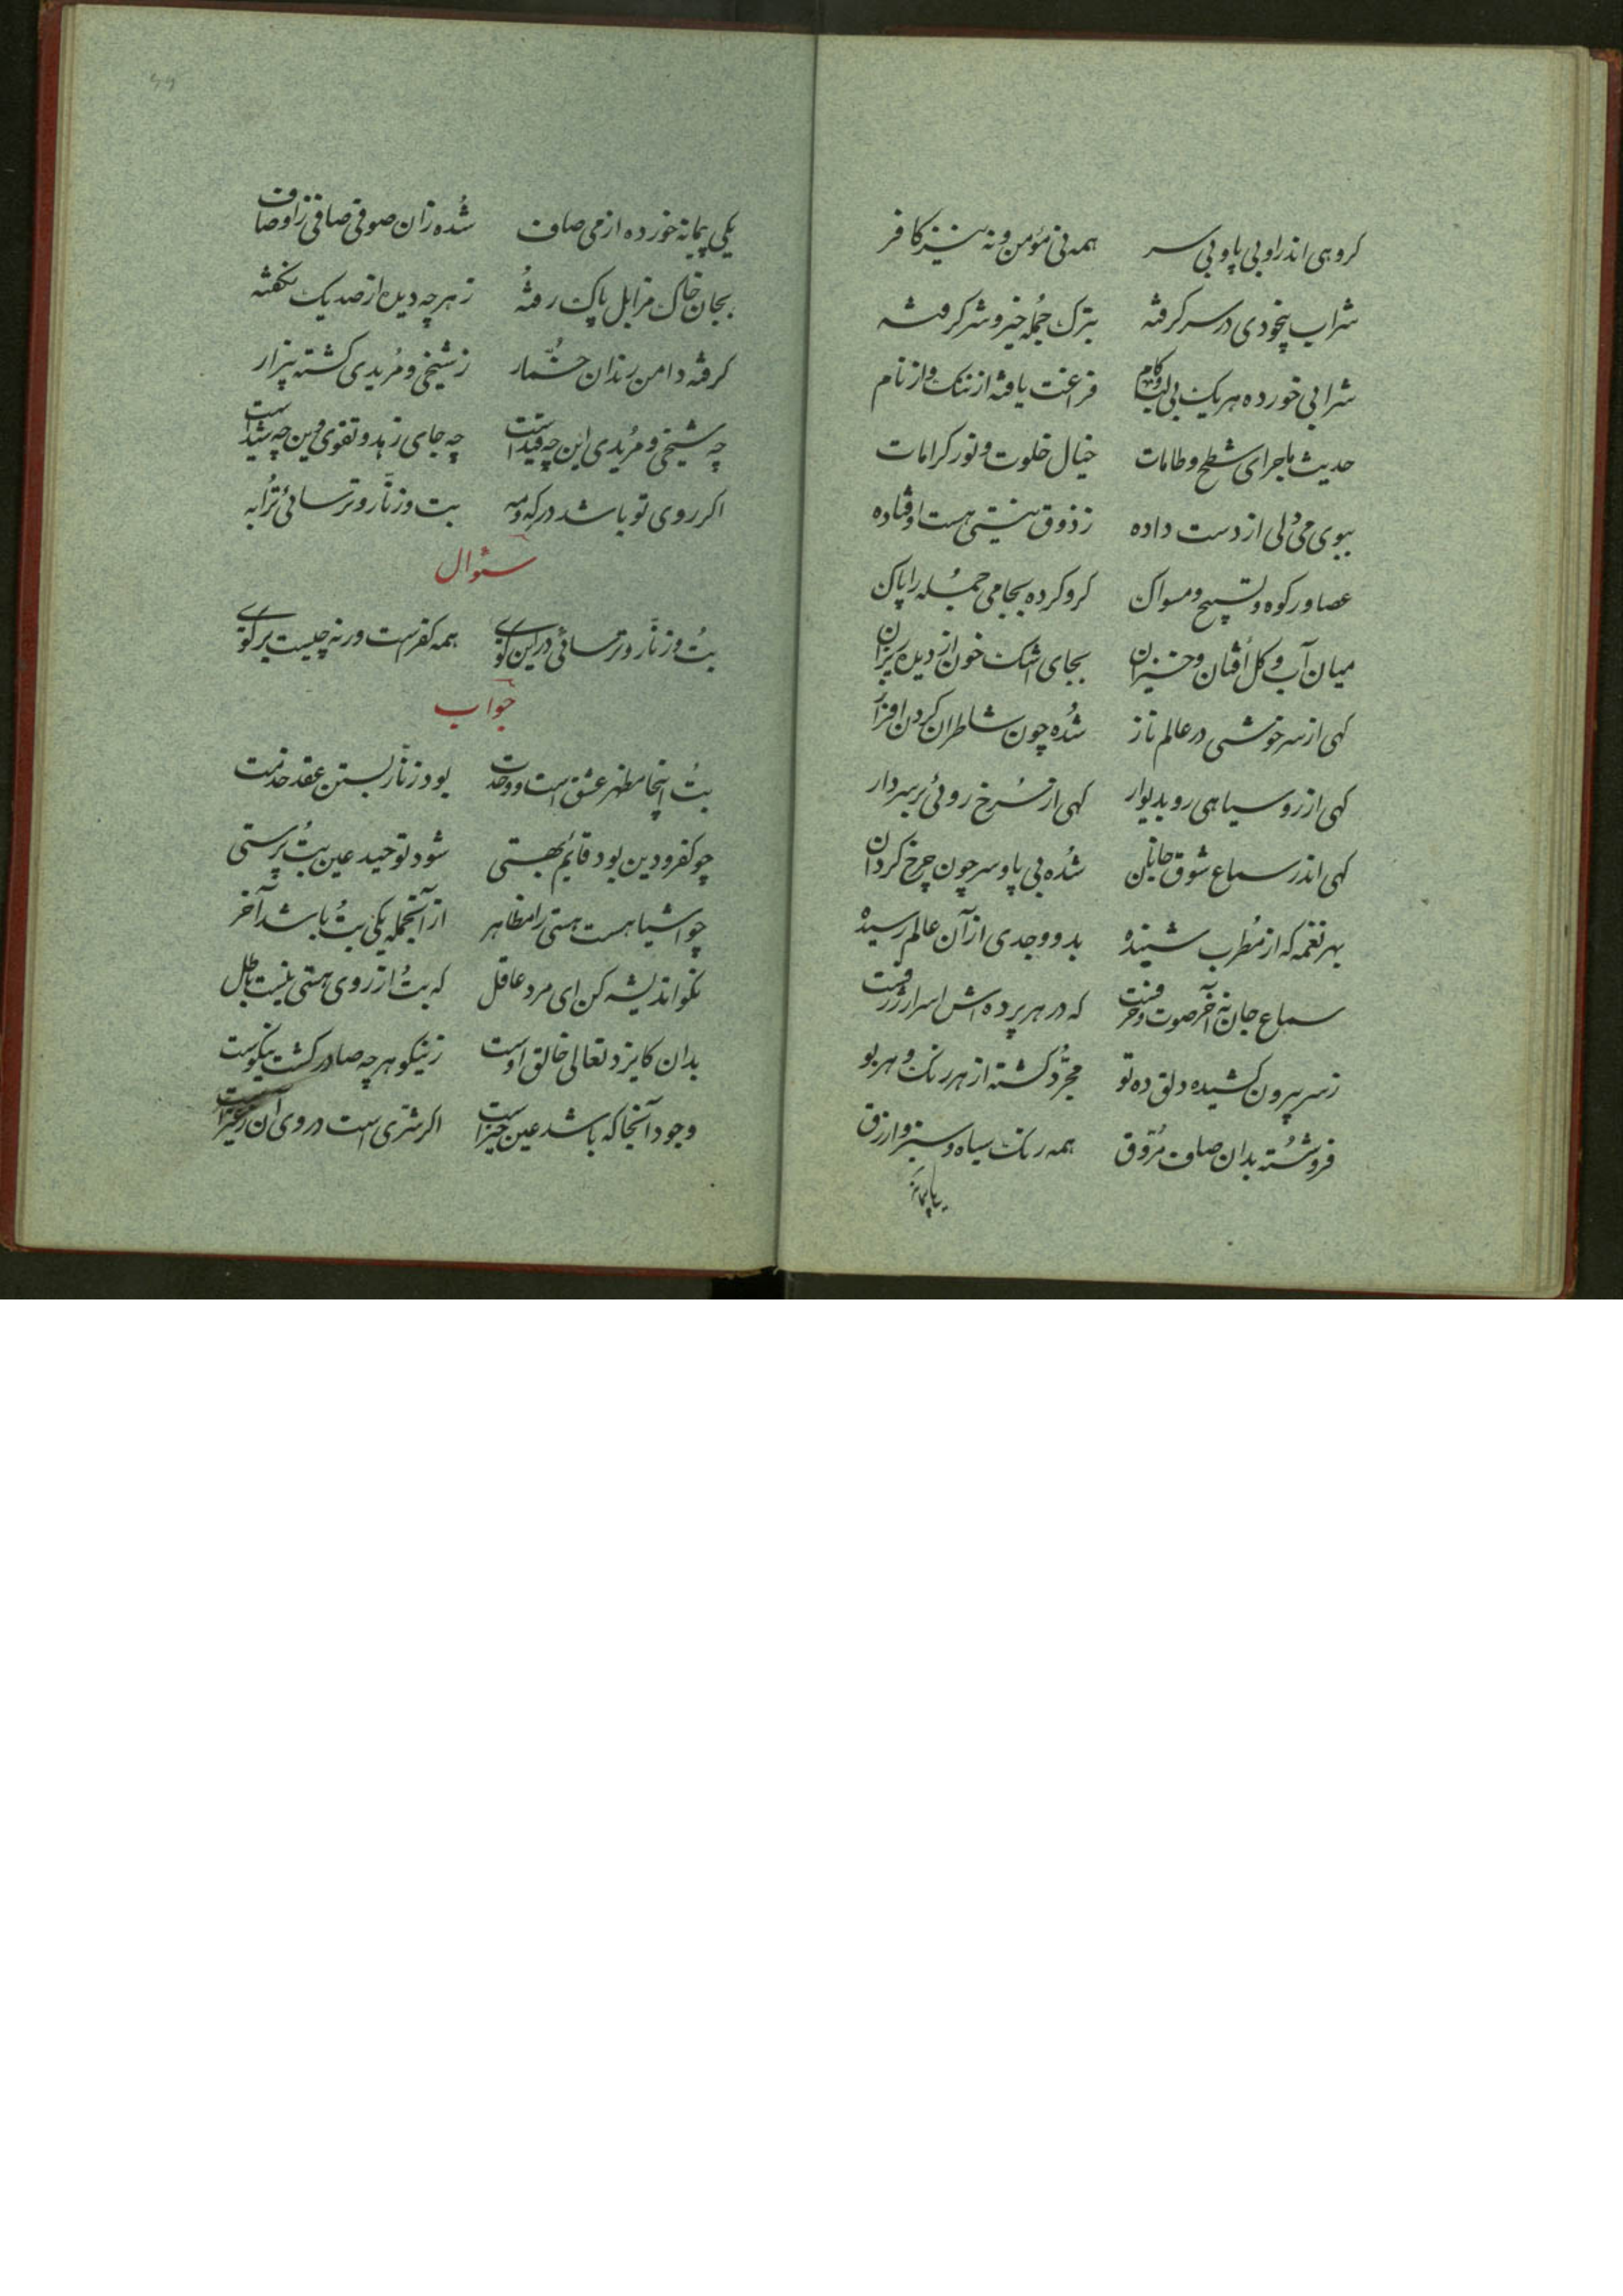 کروهی اندراو بی پا و بی سر همه نی مؤمن و نه نیز کافر
شراب بیخودی در سر کرفته بترک جمله خیر و شر کرفته
شرابی خورده هر یک بی لب و کام فراغت یافته از ننک و از نام
حدیث ماجرای شطح و طامات خیال خلوت و نور کرامات
ببوی می دلی از دست داده ز ذوق نیستی هست اوفتاده
عصا و رکوه و تسبیح و مسواک کرو کرده بجامی جمله را پاک
میان آب و کل افتان و خیزان بجای اشک خون از دیده ریزان
کهی از سرخوشی در عالم ناز شده چون شاطران کردن افراز
کهی از رو سیاهی رو بدیوار کهی از سرخ روئی بر سر دار
کهی اندر سماع شوق جانان شده بی پا و سر چون چرخ کردان
بهر نغمه که از مطرب شنیده بدو وجدی از آن عالم رسیده
سماع جان نه آخر صوت و حرفست که در هر پرده اش اسرار ژرفست
ز سر بیرون کشیده دلق ده تو مجرد کشته از هر رنک و هر بو
فروشسته بدان صاف مروق همه رنک سیاه و سبز و ازرق
یکی پیمانه خورده از می صاف شده زان صوفی صافی ز اوصاف
بجان خاک مزابل پاک رفته ز هر چه دیده از صد یک نکفته
کرفته دامن رندان خمار ز شیخی و مریدی کشته بیزار
چه شیخی و مریدی این چه قید است چه جای زهد و تقوی این چه شید است
اکر روی تو باشد در که و مه بت و زنار و ترسائی ترا به
سئوال
بت و زنار و ترسائی در این کوی همه کفرست ورنه چیست بر کوی
جواب
بت اینجا مظهر عشق است و وحدت بود زنار بستن عقد خدمت
چو کفر و دین بود قایم بهستی شود توحید عین بت پرستی
چو اشیا هست هستی را مظاهر از آنجمله یکی بت باشد آخر
نکو اندیشه کن ای مرد عاقل که بت از روی هستی نیست باطل
بدان کایزد تعالی خالق اوست ز نیکو هر چه صادر کشت نیکوست
وجود آنجا که باشد عین خیر است اکر شری است در وی آن ز غیر است